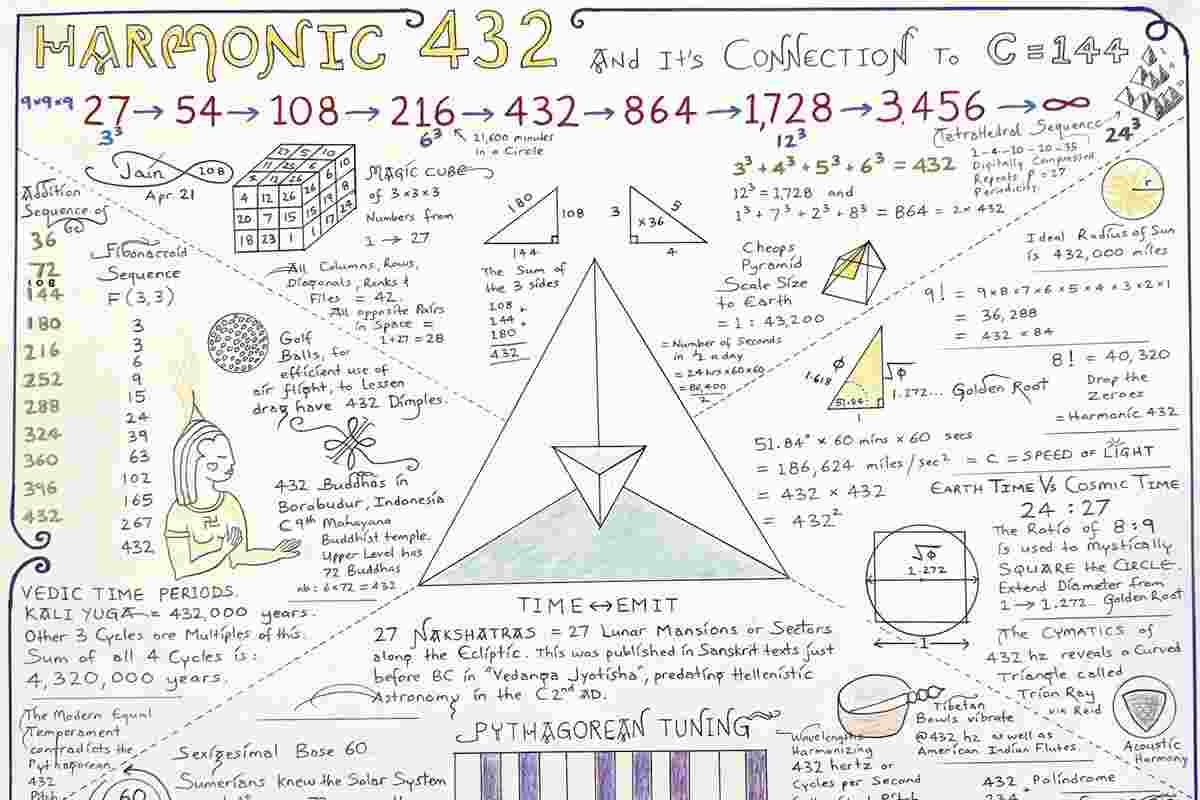 HARMONIC 432 And It's CONNECTION To C = 144
9x9x9 27 → 54 → 108 → 216 → 432 → 864 → 1,728 → 3,456 → ∞
3³
6³
21,600 minutes
in a Circle
12³
Tetrahedral Sequence
24³
1-4-10-20-35
Digitally Compressed
Repeats P = 27
Periodicity.
Jain 108
Apr. 21
MAGIC CUBE
of 3x3x3
Numbers from
1 → 27
4 12 26
20 7 15
18 23 1
All Columns, Rows,
Diagonals, Ranks &
Files = 42.
All opposite Pairs
in Space =
1+27 = 28
Addition
Sequence of
36
72
108
144
180
216
252
288
324
360
396
432
Fibonaccoid
Sequence
F (3,3)
3
3
6
9
15
24
39
63
102
165
267
432
Golf
Balls, for
efficient use of
air flight, to Lessen
drag have 432 Dimples.
432 Buddhas in
Borobudur, Indonesia
C 9th Mahayana
Buddhist temple.
Upper Level has
72 Buddhas
nb: 6x72 = 432
180
108
144
The Sum of
the 3 sides
108 +
144 +
180
432
3
5
x36
4
3³ + 4³ + 5³ + 6³ = 432
12³ = 1,728 and
1³ + 7³ + 2³ + 8³ = 864 = 2x432
r
Ideal Radius of Sun
is 432,000 miles
Cheops
Pyramid
Scale Size
to Earth
= 1 : 43,200
= Number of Seconds
in ½ a day
= 24 hrs x60x60
= 86,400
2
9! = 9x8x7x6x5x4x3x2x1
= 36,288
= 432 x 84
8! = 40,320
Drop the
Zeroes
= Harmonic 432
Φ
1.618
√Φ
1.272...
51.84°
1
Golden Root
51.84° x 60 mins x 60 secs
= 186,624 miles/sec² = C = SPEED OF LIGHT
= 432 x 432
= 432²
EARTH TIME Vs COSMIC TIME
24 : 27
The Ratio of 8:9
is used to mystically
SQUARE the CIRCLE.
Extend Diameter from
1 → 1.272... Golden Root
√Φ
1.272
1
VEDIC TIME PERIODS.
KALI YUGA = 432,000 years.
Other 3 Cycles are Multiples of this.
Sum of all 4 Cycles is:
4,320,000 years.
TIME ↔ EMIT
27 NAKSHATRAS = 27 Lunar Mansions or Sectors
along the Ecliptic. This was published in Sanskrit texts just
before BC in "Vedanga Jyotisha", predating Hellenistic
Astronomy in the C 2nd AD.
The CYMATICS of
432 hz reveals a Curved
Triangle called
Trion Ray
via Reid
Acoustic
Harmony
Tibetan
Bowls vibrate
@432 hz as well as
American Indian Flutes.
The Modern Equal
Temperament
contradicts the
Pythagorean
432
Pitch
60
Sexigesimal Base 60
Sumerians knew the Solar System
PYTHAGOREAN TUNING
Wavelengths
Harmonizing
432 hertz or
Cycles per Second
432 Palindrome
234